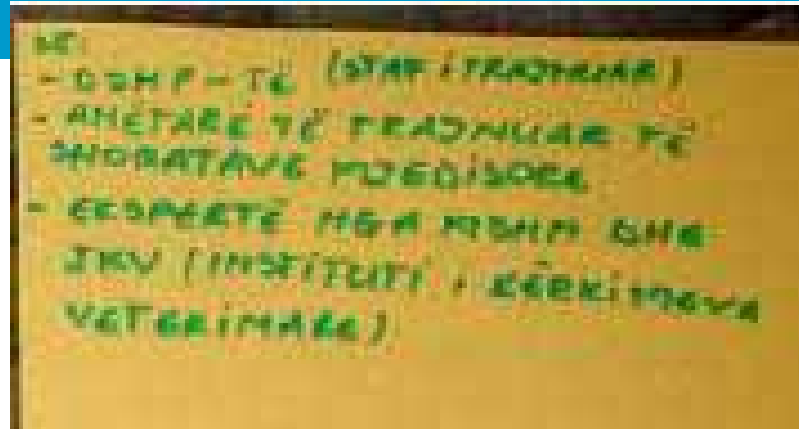 - OJMF-TË (STAF I TRAJNUAR)
- ANËTARË TË TRAJNUAR TË
SHOQATAVE MJEDISORE
- EKSPERTË NGA DHE
IKV (INSTITUTI I KËRKIMEVE
VETERINARE)